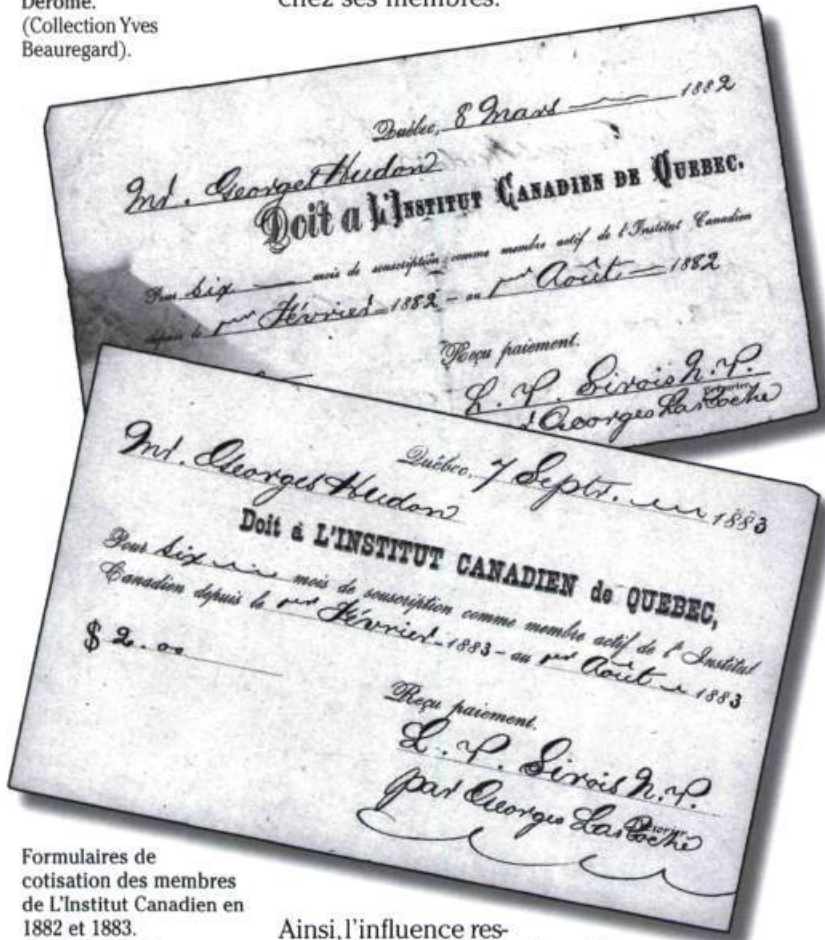 Derome.
(Collection Yves
Beauregard).
chez ses membres.
Québec, 8 Mars 1882
Mr. Georges Hudon
Doit a L'INSTITUT CANADIEN DE QUEBEC.
Pour Six mois de souscription comme membre actif de l'Institut Canadien
depuis le 1er Février 1882 - au 1er Août - 1882
Reçu paiement.
L. P. Sirois N. P.
Trésorier
Georges LaRoche
Québec, 7 Septr. 1883
Mr. Georges Hudon
Doit à L'INSTITUT CANADIEN de QUEBEC,
Pour Six mois de souscription comme membre actif de l'Institut
Canadien depuis le 1er Février - 1883 - au 1er Août 1883
$ 2.00
Reçu paiement.
L. P. Sirois N. P.
Trésorier
par Georges LaRoche
Formulaires de
cotisation des membres
de L'Institut Canadien en
1882 et 1883.
Ainsi, l'influence res-